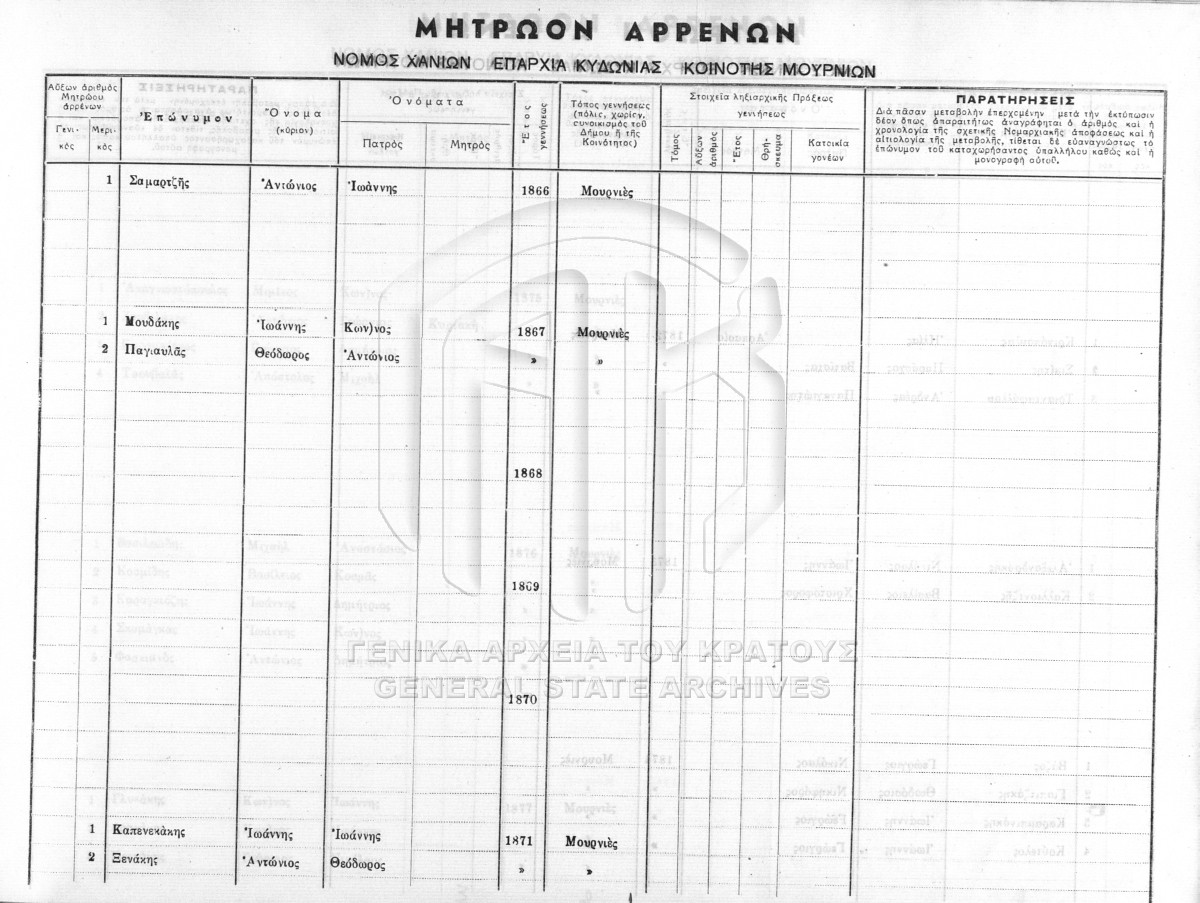 ΜΗΤΡΩΟΝ ΑΡΡΕΝΩΝ
ΝΟΜΟΣ ΧΑΝΙΩΝ ΕΠΑΡΧΙΑ ΚΥΔΩΝΙΑΣ ΚΟΙΝΟΤΗΣ ΜΟΥΡΝΙΩΝ
Αὔξων ἀριθμὸς Μητρώου ἀρρένων
Γενικός
Μερικός
Ἐπώνυμον
Ὄνομα (κύριον)
Ὀνόματα
Πατρὸς
Μητρὸς
Ἔτος γεννήσεως
Τόπος γεννήσεως (πόλις, χωρίον, συνοικισμὸς τοῦ Δήμου ἢ τῆς Κοινότητος)
Στοιχεῖα ληξιαρχικῆς Πράξεως γεννήσεως
Τόμος
Αὔξων ἀριθμὸς
Ἔτος
Θρήσκευμα
Κατοικία γονέων
ΠΑΡΑΤΗΡΗΣΕΙΣ
Διὰ πᾶσαν μεταβολὴν ἐπερχομένην μετὰ τὴν ἐκτύπωσιν
δέον ὅπως ἀπαραιτήτως ἀναγράφηται ὁ ἀριθμὸς καὶ ἡ
χρονολογία τῆς σχετικῆς Νομαρχιακῆς ἀποφάσεως καὶ ἡ
αἰτιολογία τῆς μεταβολῆς, τίθεται δὲ εὐαναγνώστως τὸ
ἐπώνυμον τοῦ καταχωρήσαντος ὑπαλλήλου καθὼς καὶ ἡ
μονογραφὴ αὐτοῦ.
1 Σαμαρτζῆς Ἀντώνιος Ἰωάννης 1866 Μουρνιὲς
1 Μουδάκης Ἰωάννης Κων)νος 1867 Μουρνιὲς
2 Παγιαυλᾶς Θεόδωρος Ἀντώνιος » »
1868
1869
1870
1 Καπενεκάκης Ἰωάννης Ἰωάννης 1871 Μουρνιὲς
2 Ξενάκης Ἀντώνιος Θεόδωρος » »
ΓΕΝΙΚΑ ΑΡΧΕΙΑ ΤΟΥ ΚΡΑΤΟΥΣ
GENERAL STATE ARCHIVES